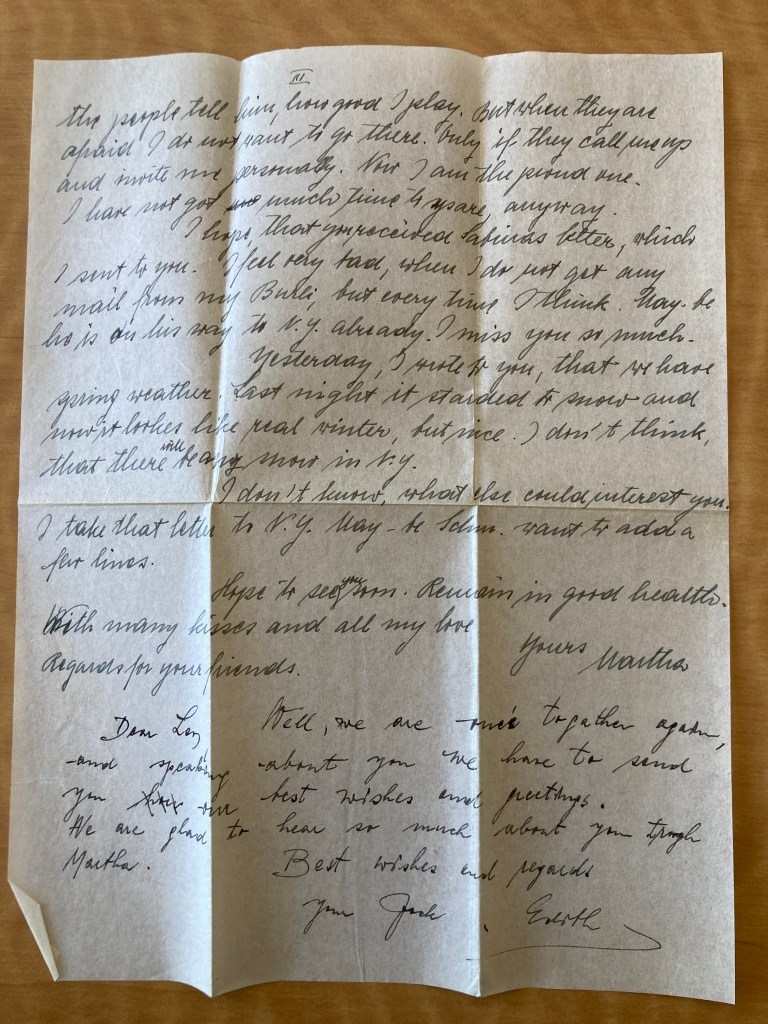 III
the people tell him, how good I play. But when they are
afraid I do not want to go there. Only if they call me up
and invite me personally. Now I am the proud one.
I have not got much time to spare, anyway.
I hope, that you received Sabinas letter, which
I sent to you. I feel very bad, when I do not get any
mail from my Burli, but every time I think. May-be
he is on his way to N.Y. already. I miss you so much.
Yesterday, I wrote to you, that we have
spring weather. Last night it starded to snow and
now it lookes like real winter, but nice. I don't think,
that there will be any snow in N.Y.
I don't know, what else could interest you.
I take that letter to N.Y. May-be Schm. want to add a
few lines.
Hope to see you soon. Remain in good health.
With many kisses and all my love
Yours Martha
Regards for your friends.
Dear Well, we are once together again,
and speaking about you we have to send
you our best wishes and greetings.
We are glad to hear so much about you trough
Martha. Best wishes and regards
your Jack . Edith